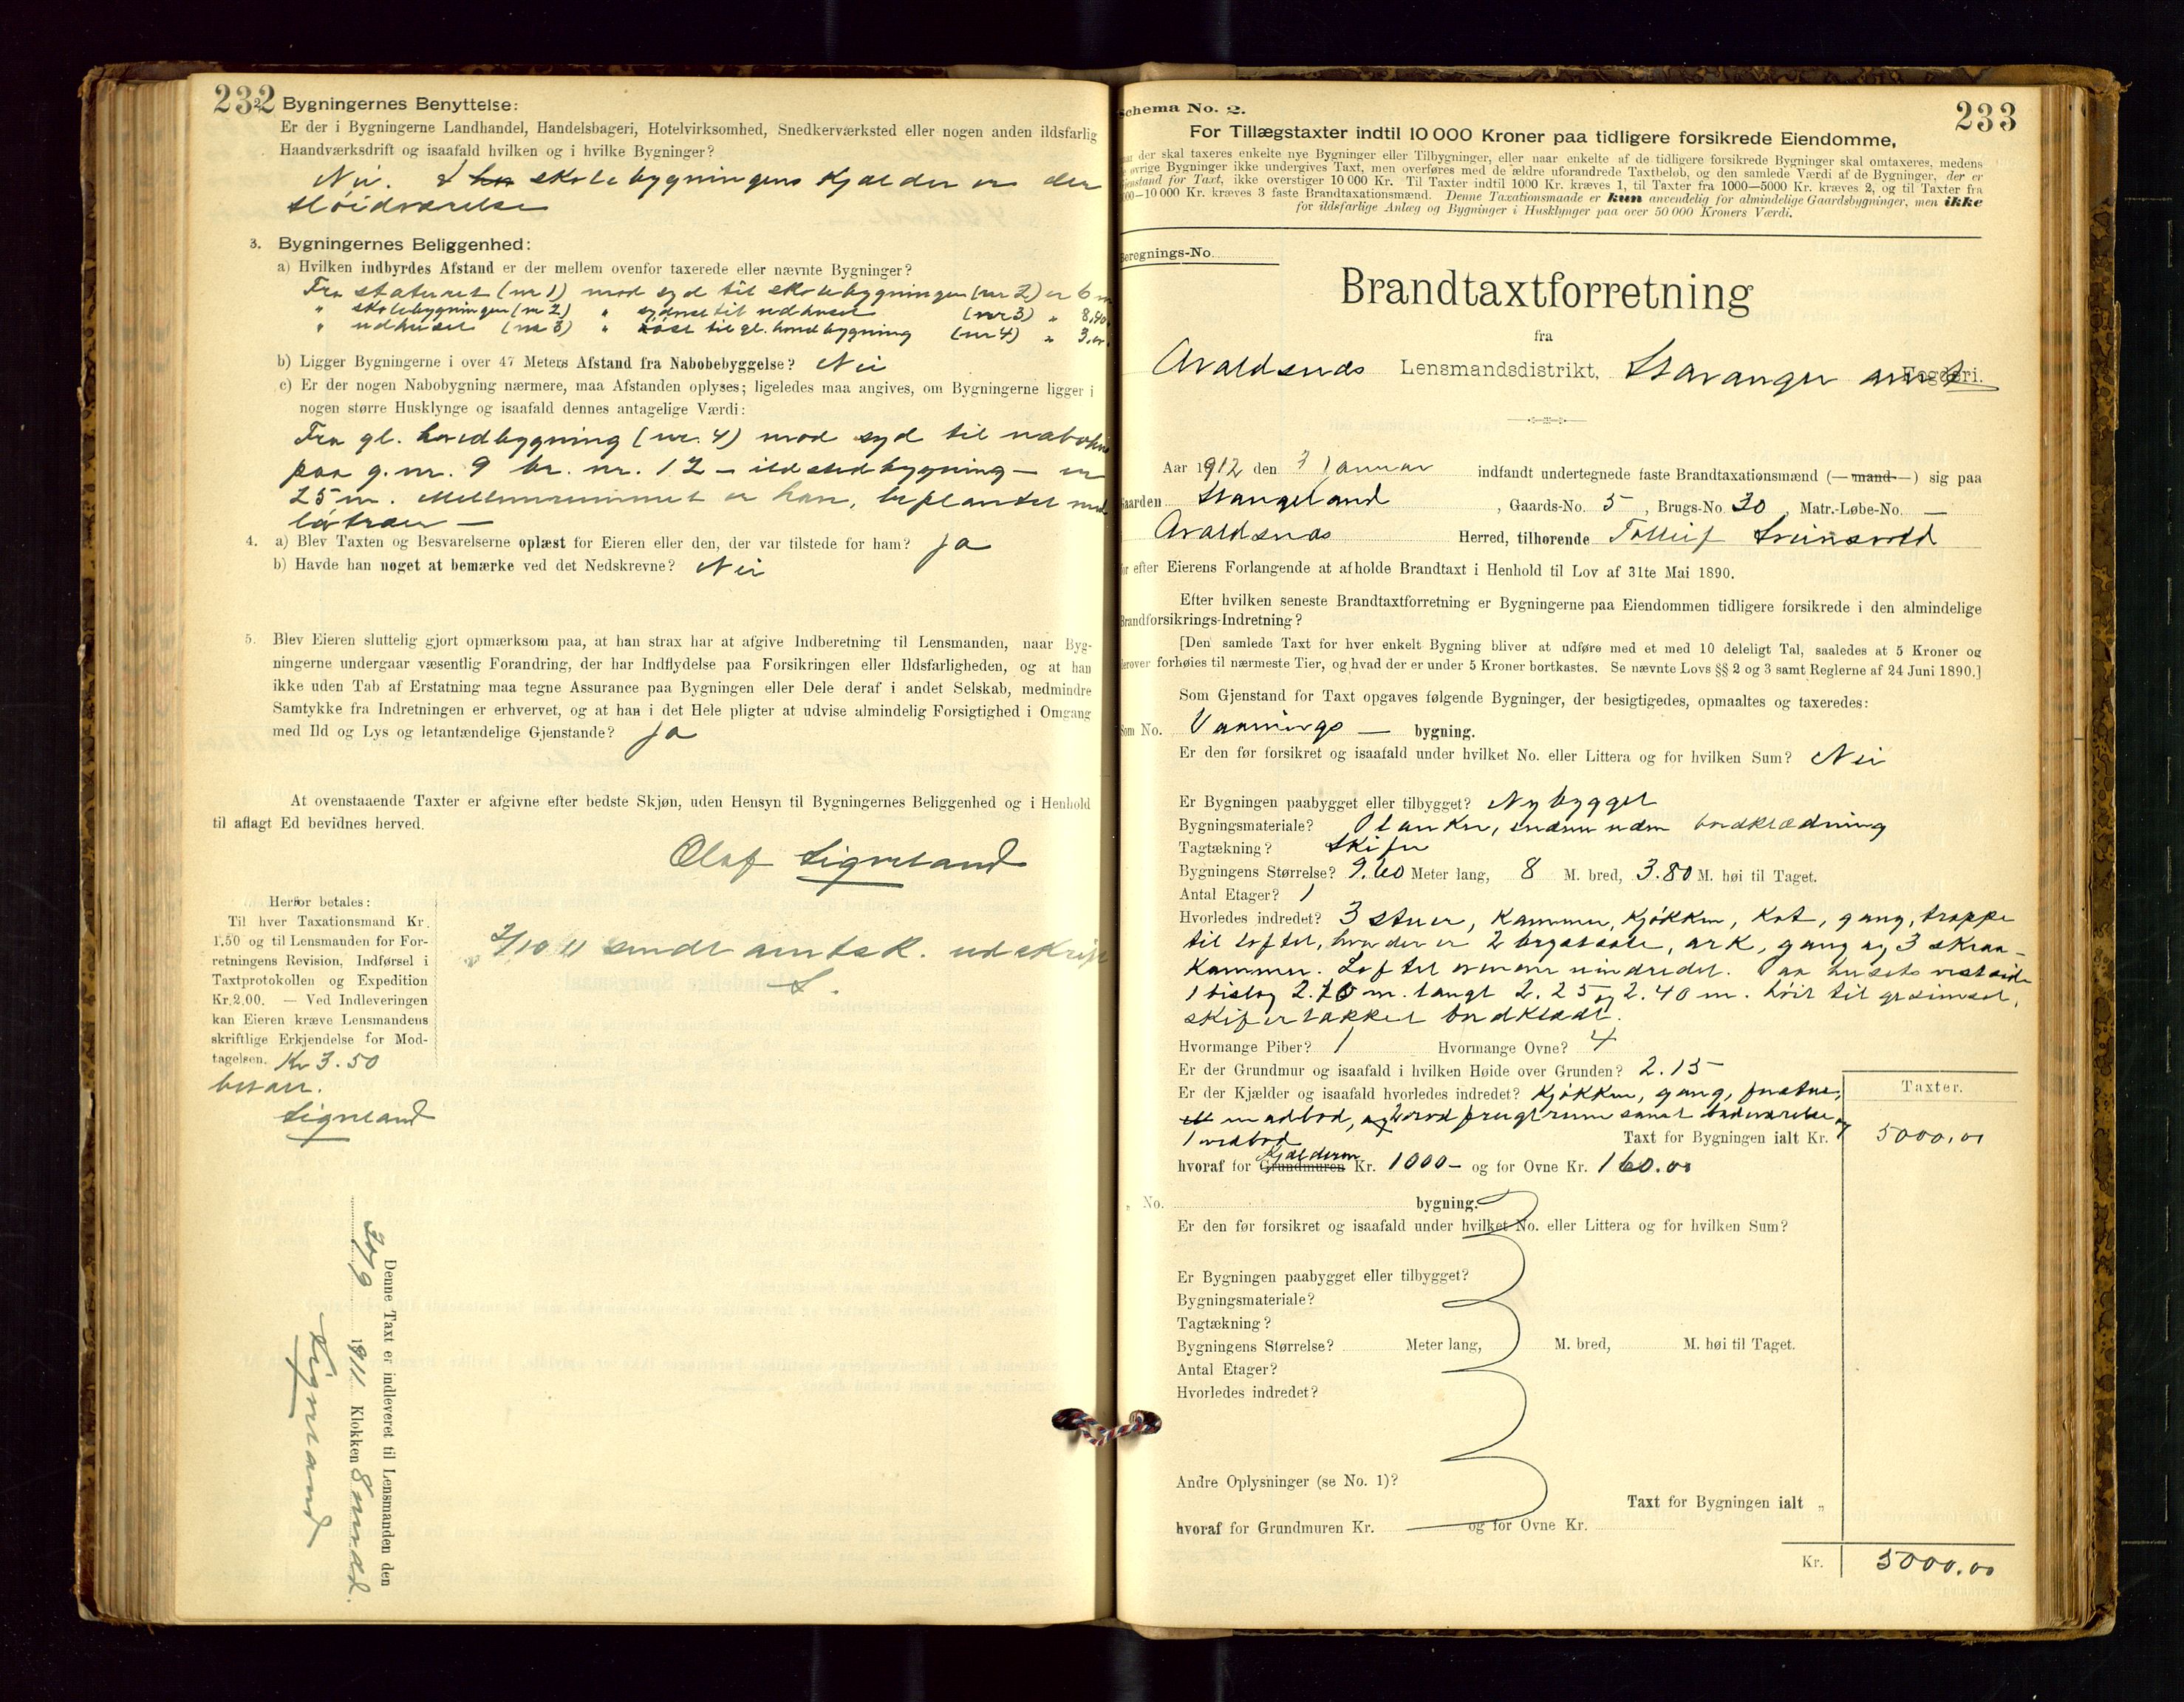 232
Bygningernes Benyttelse:
Er der i Bygningerne Landhandel, Handelsbageri, Hotelvirksomhed, Snedkerværksted eller nogen anden ildsfarlig
Haandværksdrift og isaafald hvilken og i hvilke Bygninger?
Nei. I skolebygningens Kjælder er der
sløidværelse
3. Bygningernes Beliggenhed:
a) Hvilken indbyrdes Afstand er der mellem ovenfor taxerede eller nævnte Bygninger?
Fra staburet (nr 1) mod syd til skolebygningen (nr 2) er 6 m
" skolebygningen (nr 2) " sydøst til udhuset (nr 3) " 8,40
" udhuset (nr 3) " øst til gl. hovedbygning (nr 4) " 3.00
b) Ligger Bygningerne i over 47 Meters Afstand fra Nabobebyggelse? Nei
c) Er der nogen Nabobygning nærmere, maa Afstanden oplyses; ligeledes maa angives, om Bygningerne ligger i
nogen større Husklynge og isaafald dennes antagelige Værdi:
Fra gl. hovedbygning (nr. 4) mod syd til nabohus
paa g.nr. 9 br. nr. 12 – ildstedbygning – er
25 m. Mellemrummet er have, beplantet med
løvtræer —
4. a) Blev Taxten og Besvarelserne oplæst for Eieren eller den, der var tilstede for ham? Ja
b) Havde han noget at bemærke ved det Nedskrevne? Nei
5. Blev Eieren sluttelig gjort opmærksom paa, at han strax har at afgive Indberetning til Lensmanden, naar Byg-
ningerne undergaar væsentlig Forandring, der har Indflydelse paa Forsikringen eller Ildsfarligheden, og at han
ikke uden Tab af Erstatning maa tegne Assurance paa Bygningen eller Dele deraf i andet Selskab, medmindre
Samtykke fra Indretningen er erhvervet, og at han i det Hele pligter at udvise almindelig Forsigtighed i Omgang
med Ild og Lys og letantændelige Gjenstande? Ja
At ovenstaaende Taxter er afgivne efter bedste Skjøn, uden Hensyn til Bygningernes Beliggenhed og i Henhold
til aflagt Ed bevidnes herved.
Olaf Ligneland
Herfor betales:
Til hver Taxationsmand Kr.
1.50 og til Lensmanden for For-
retningens Revision, Indførsel i
Taxtprotokollen og Expedition
Kr. 2.00. — Ved Indleveringen
kan Eieren kræve Lensmandens
skriftlige Erkjendelse for Mod-
tagelsen. Kr 3.50
betalt.
Ligneland
2/10 11 sendt amtsk. udskrift
L.
Denne Taxt er indleveret til Lensmanden den
30/9 1911 Klokken 8 midd.
Ligneland
233
Schema No. 2.
For Tillægstaxter indtil 10 000 Kroner paa tidligere forsikrede Eiendomme,
naar der skal taxeres enkelte nye Bygninger eller Tilbygninger, eller naar enkelte af de tidligere forsikrede Bygninger skal omtaxeres, medens
de øvrige Bygninger ikke undergives Taxt, men overføres med de ældre uforandrede Taxtbeløb, og den samlede Værdi af de Bygninger, der er
Gjenstand for Taxt, ikke overstiger 10 000 Kr. Til Taxter indtil 1000 Kr. kræves 1, til Taxter fra 1000—5000 Kr. kræves 2, og til Taxter fra
5000—10 000 Kr. kræves 3 faste Brandtaxationsmænd. Denne Taxationsmaade er kun anvendelig for almindelige Gaardsbygninger, men ikke
for ildsfarlige Anlæg og Bygninger i Husklynger paa over 50 000 Kroners Værdi.
Beregnings-No.
Brandtaxtforretning
fra
Avaldsnes Lensmandsdistrikt, Stavanger amt Fogderi.
Aar 1912 den 3 Januar indfandt undertegnede faste Brandtaxationsmænd (—mand—) sig paa
Gaarden Stangeland, Gaards-No. 5, Brugs-No. 30, Matr.-Løbe-No. —
Avaldsnes Herred, tilhørende Tolleif
for efter Eierens Forlangende at afholde Brandtaxt i Henhold til Lov af 31te Mai 1890.
Efter hvilken seneste Brandtaxtforretning er Bygningerne paa Eiendommen tidligere forsikrede i den almindelige
Brandforsikrings-Indretning?
[Den samlede Taxt for hver enkelt Bygning bliver at udføre med et med 10 deleligt Tal, saaledes at 5 Kroner og
derover forhøies til nærmeste Tier, og hvad der er under 5 Kroner bortkastes. Se nævnte Lovs §§ 2 og 3 samt Reglerne af 24 Juni 1890.]
Som Gjenstand for Taxt opgaves følgende Bygninger, der besigtigedes, opmaaltes og taxeredes:
Som No. Vaanings — bygning.
Er den før forsikret og isaafald under hvilket No. eller Littera og for hvilken Sum? Nei
Er Bygningen paabygget eller tilbygget? Nybygget
Bygningsmateriale? Planker, uden bordklædning
Tagtækning? Skifer
Bygningens Størrelse? 9.60 Meter lang, 8 M. bred, 3.80 M. høi til Taget.
Antal Etager? 1
Hvorledes indredet? 3 stuer, kammer, kjøkken, kot, gang, trappe
til loftet, hvor der er 2 kvistsale, ark, gang og 3 skraa-
kammer. Loftet ovenover uindredet. Paa husets vestside
1 bislag 2.70 m. langt 2.25 og 2.40 m. høit til gesimset,
skifertækket bordklædt.
Hvormange Piber? 1 Hvormange Ovne? 4
Er der Grundmur og isaafald i hvilken Høide over Grunden? 2.15
Er der Kjælder og isaafald hvorledes indredet? Kjøkken, gang,
madbod, og frugtrum samt badeværelse og
1 vedbod
Taxter.
Taxt for Bygningen ialt Kr. 5000,00
hvoraf for Grundmuren Kjælderen Kr. 1000- og for Ovne Kr. 160.00
" No. bygning.
Er den før forsikret og isaafald under hvilket No. eller Littera og for hvilken Sum?
Er Bygningen paabygget eller tilbygget?
Bygningsmateriale?
Tagtækning?
Bygningens Størrelse? Meter lang, M. bred, M. høi til Taget.
Antal Etager?
Hvorledes indredet?
Andre Oplysninger (se No. 1)?
Taxt for Bygningen ialt "
hvoraf for Grundmuren Kr. og for Ovne Kr.
Kr. 5000.00